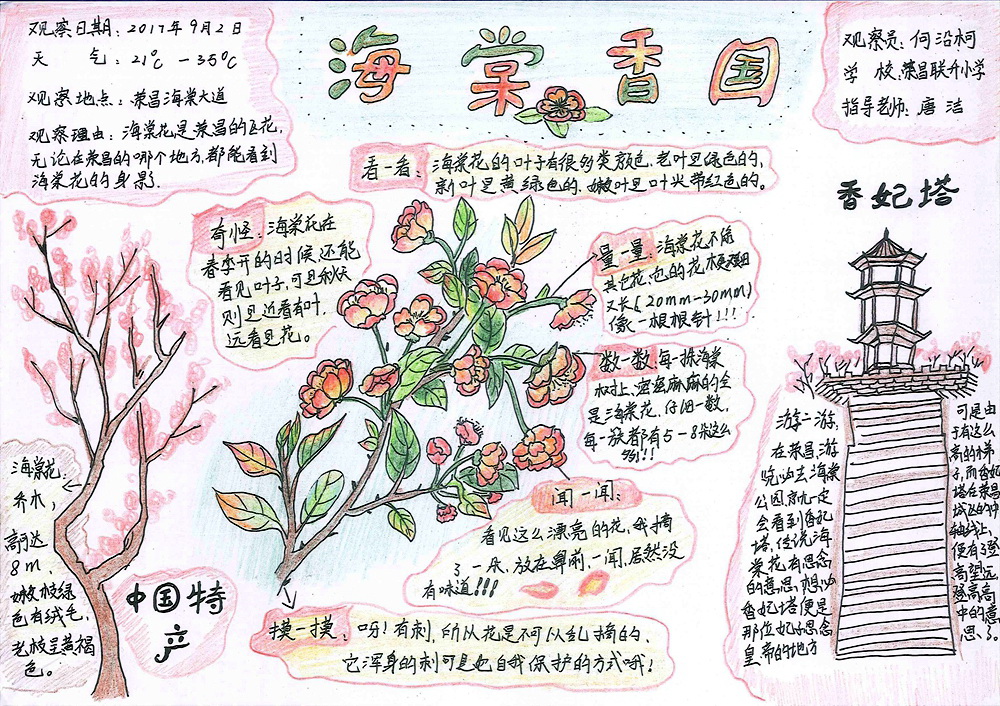 观察日期：2017年9月2日
天 气：21℃－35℃
观察地点：荣昌海棠大道
观察理由：海棠花是荣昌的区花，
无论在荣昌的哪个地方，都能看到
海棠花的身影.
海棠香国
观察员：何沿柯
学 校：荣昌联升小学
指导老师：唐洁
看一看：海棠花的叶子有很多类颜色，老叶呈绿色的，
新叶呈黄绿色的，嫩叶呈叶尖带红色的。
奇怪：海棠花在
春季开的时候还能
看见叶子，可是秋天
则是近看有叶，
远看是花。
量一量：海棠花不像
其它花，它的花梗细
又长（20mm－30mm）
像一根根针！！！
数一数：每一株海棠
树上，密密麻麻的全
是海棠花，仔细一数，
每一簇都有5－8朵这么
多！！！
闻一闻：
看见这么漂亮的花，我摘
了一朵，放在鼻前，一闻，居然没
有味道！！！
摸一摸：呀！有刺，所以花是不可以乱摘的，
它浑身的刺可是她自我保护的方式哦！
海棠花：
乔木，
高可达
8m，
嫩枝绿
色有绒毛，
老枝呈黄褐
色。
中国特
产
香妃塔
游一游：
在荣昌，游
览必去海棠
公园，就一定
会看到香妃
塔，传说海
棠花有思念
的意思，想必
香妃塔便是
那位妃子思念
皇帝的地方
可是由
于有这么
高的梯
子，而香妃
塔在荣昌
城区的中
轴线上，
便有了登
高望远，
登高高
中的意
思了。